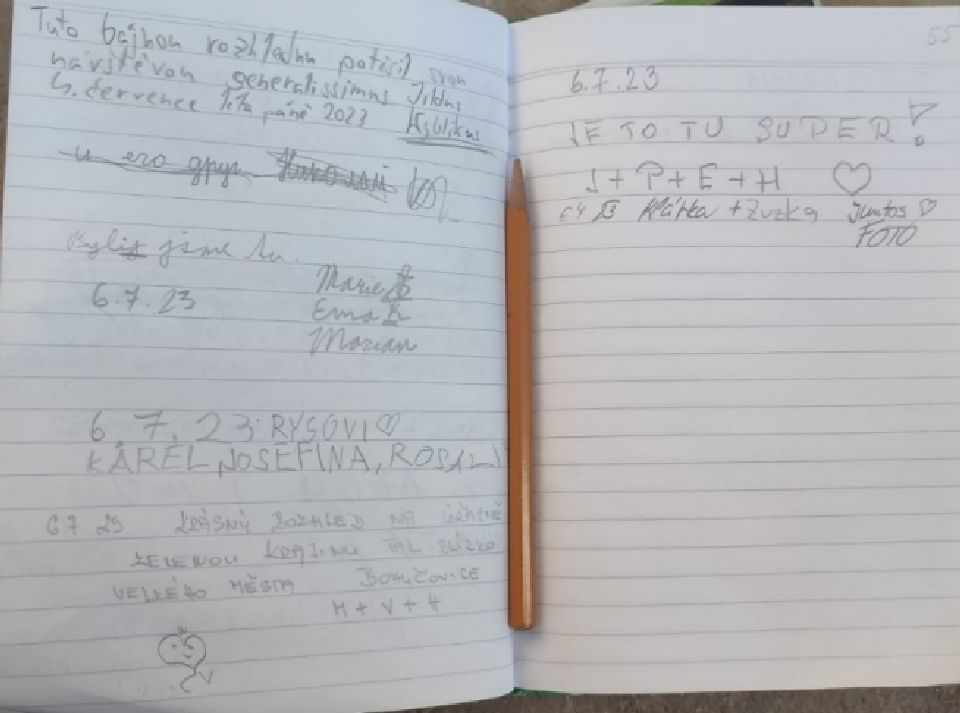 Tuto bájnou rozhlednu poctil svou
návštěvou generalissimus Jildus
4. července léta páně 2023 Kyblikus
и его друг Николай
Byli jsme tu.
6.7.23
Marie B
Ema K
Marian
6.7.23 RYSOVI ♡
KAREL, JOSEFINA,
6 7 23 KRÁSNÝ ROZHLED NA ÚŽASNĚ
ZELENOU KRAJINU TAK BLÍZKO
VELKÉHO MĚSTA BOHUČOVICE
M + V + H
55
6.7.23
JE TO TU SUPER!
J + P + E + H ♡
Klárka + Zuzka Juntos ♡
FOTO